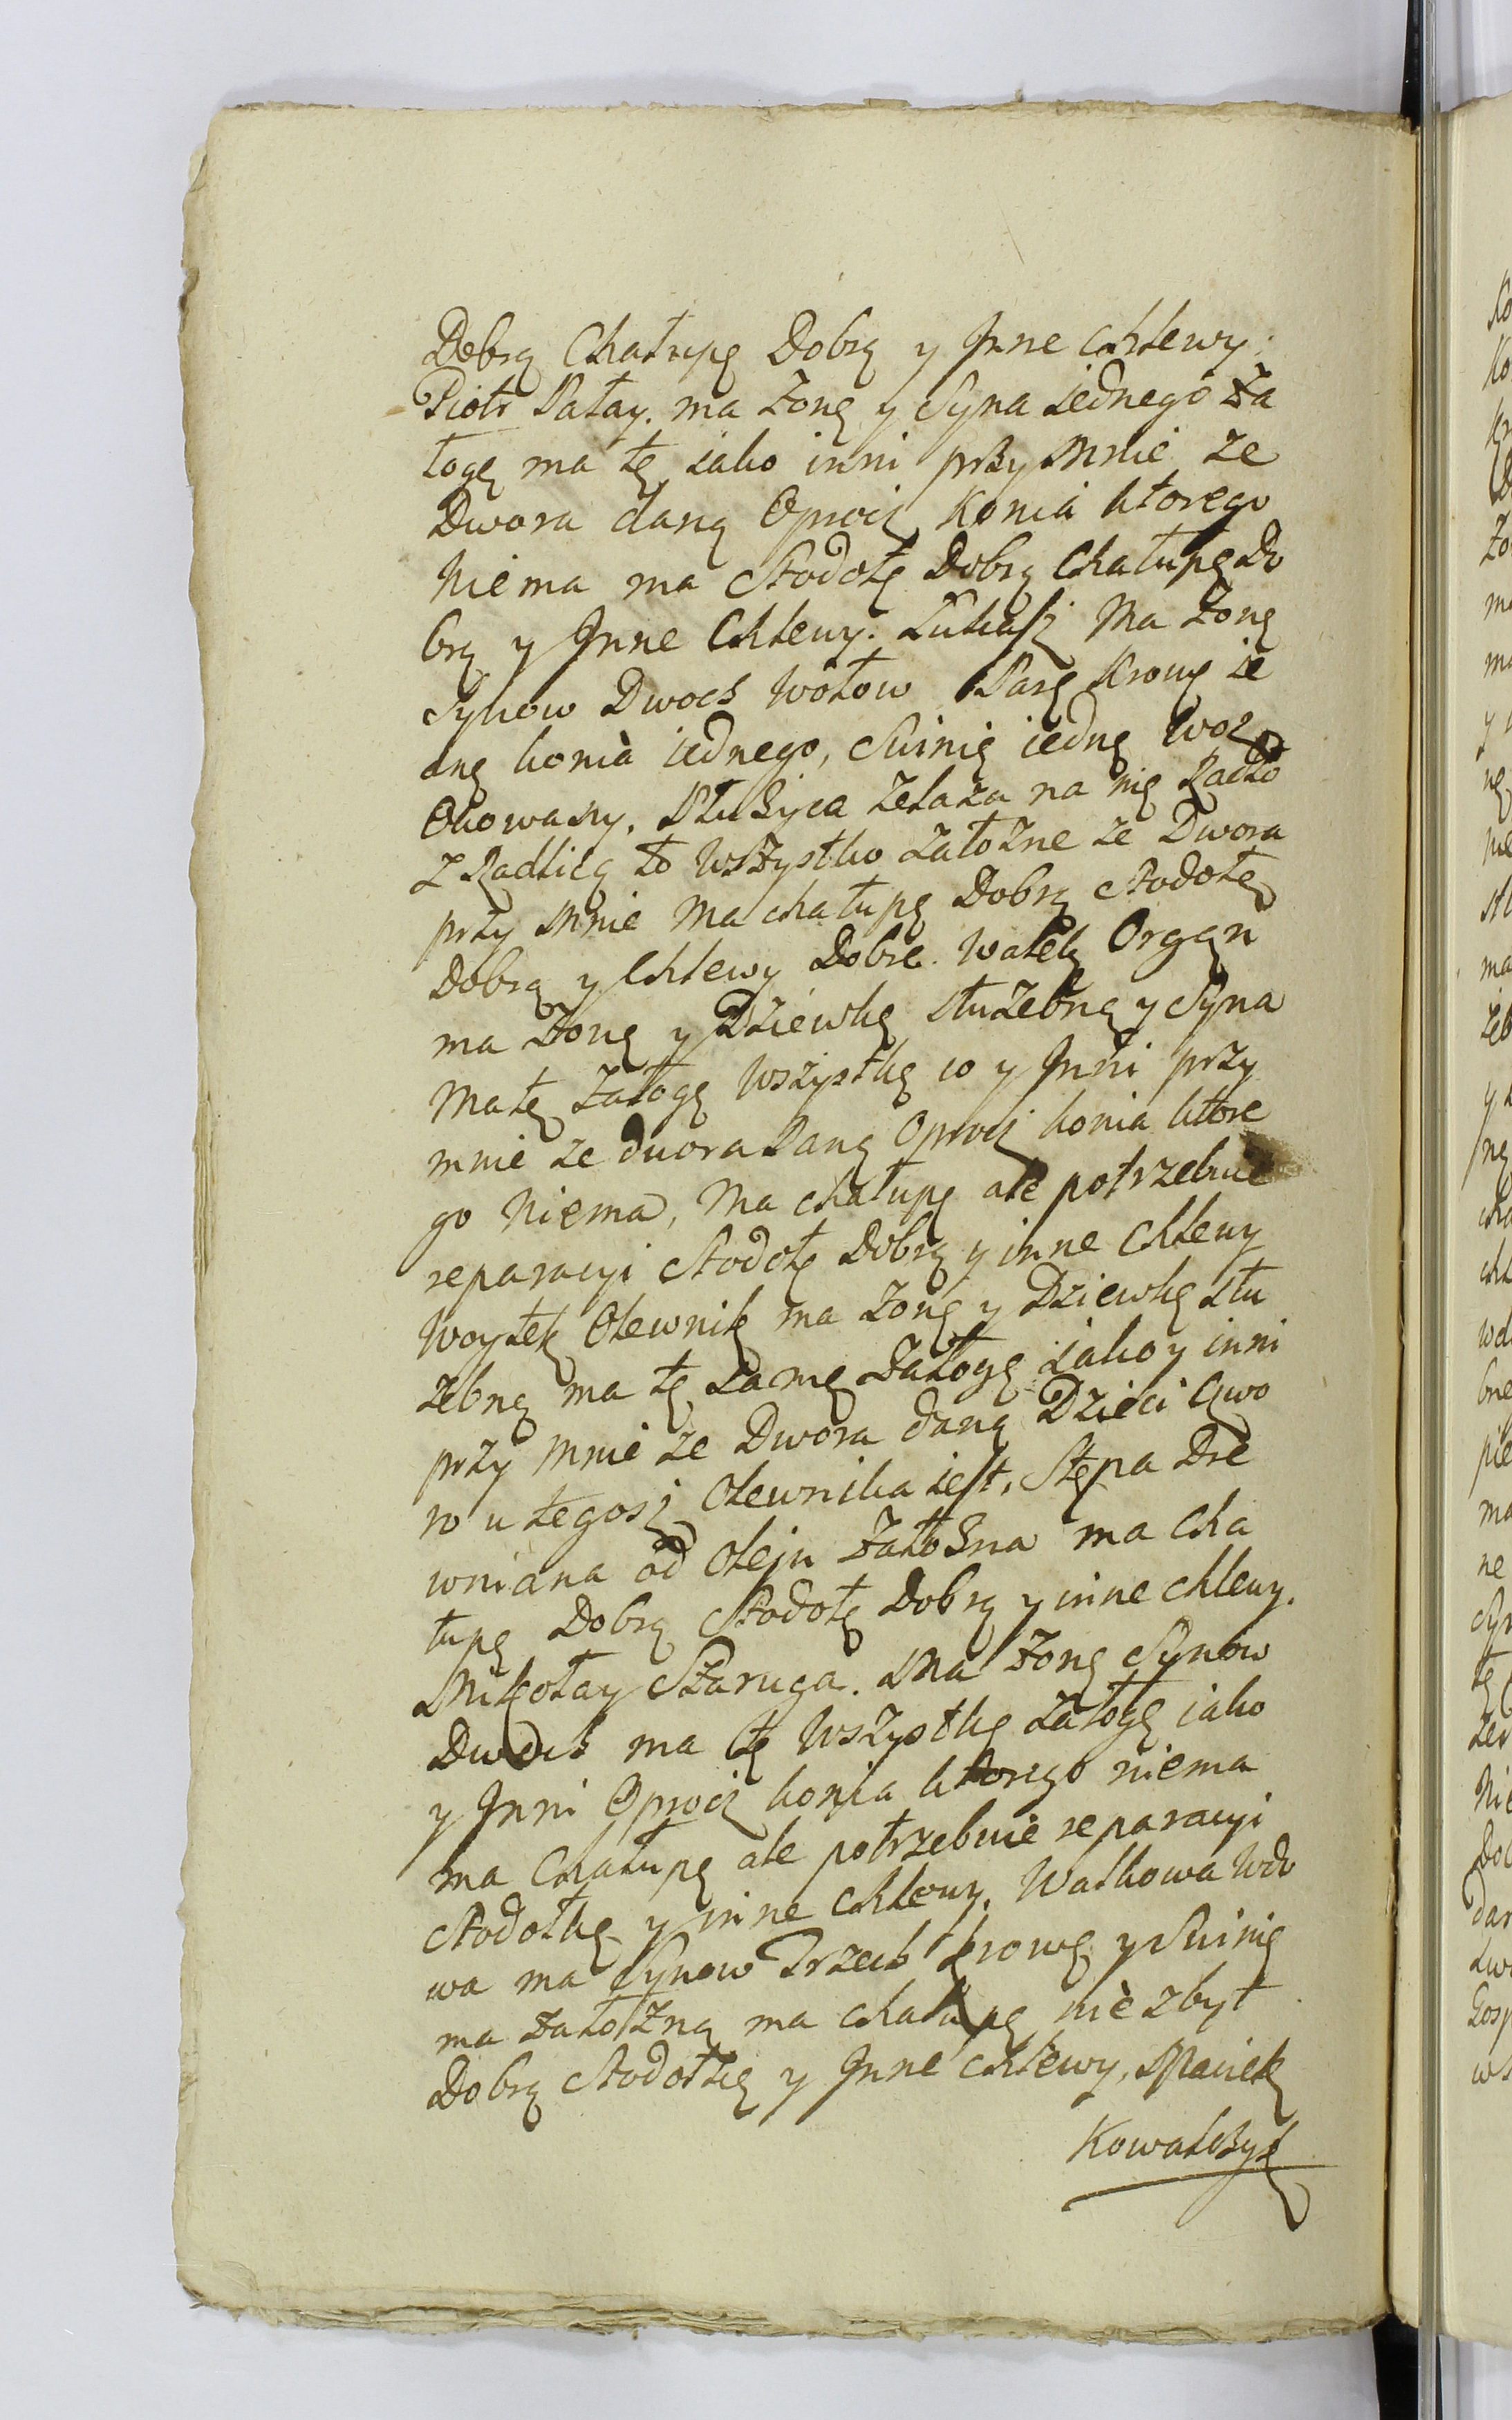 Dobrą Chałupę Dobrą y Inne Chlewy.
Piotr Pałay. ma żonę y Syna iednego za
łogę ma tę iako inni przy mnie ze
Dwora daną Oprocz Konia ktorego
niema ma Stodołę Dobrą Chałupę Do
brą y Inne Chlewy. Łukasz Ma żonę
Synow Dwoch Wołow Parę Krowę ie
dnę konia iednego, Swinię iednę Woz
Okowany, Płużyca żelaza na nię Radło
z Radlicą to Wszystko założne ze Dwora
przy mnie Ma chałupę Dobrą Stodołę
Dobrą y Chlewy Dobre. Wałek Organ
ma żonę y Dziewkę służebną y Syna
Ma tę załogę Wszystkę co y Inni przy
mnie ze dwora Daną Oprocz konia ktore
go niema, Ma chałupę ale potrzebuie
reparacyi Stodołę Dobrą y inne Chlewy
Woytek Olewnik ma żonę y Dziewkę słu
żebną ma tę samę załogę iako y inni
przy mnie ze Dwora daną Dzieci Czwo
ro u tegosz Olewnika iest, Stępa Dre
wniana od Oleju założna ma Cha
łupę Dobrą Stodołę Dobrą y inne chlewy.
Mikołay Szaruga. Ma żonę Synow
Dwoch ma tę Wszystkę załogę iako
y Inni Oprocz konia ktorego niema
ma Chałupę ale potrzebuie reparacyi
Stodołkę y inne Chlewy, Walkowa Wdo
wa ma Synow Trzech krowę y Swinię
ma założną ma chałupę nie zbyt
Dobrą Stodołkę y Inne Chlewy, Maciek
Kowalczyk